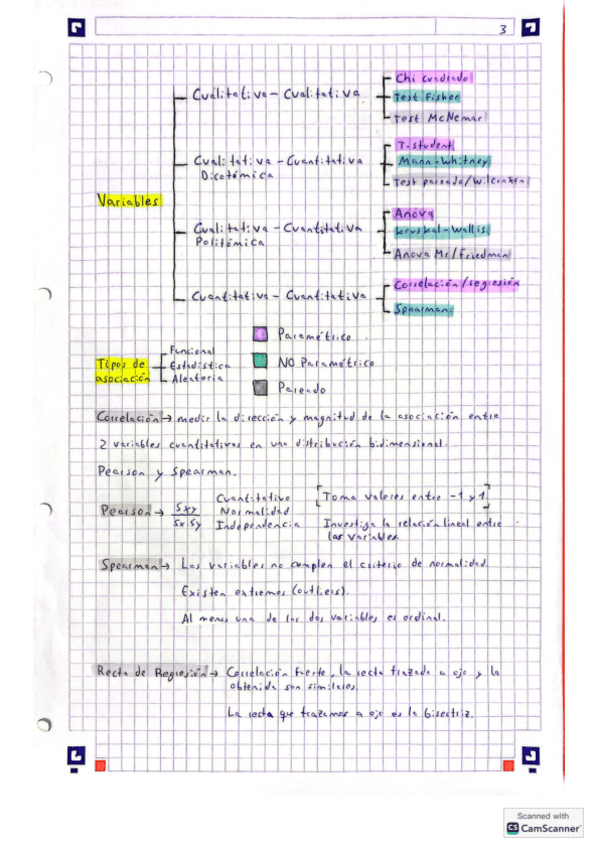 3
Variables
Cualitativa - Cualitativa
Chi cuadrado
Test Fisher
Test McNemar
Cualitativa - Cuantitativa
Dicotómica
T-student
Mann-Whitney
Test pareado/Wilcoxon
Cualitativa - Cuantitativa
Politómica
Anova
Kruskal-Wallis
Anova Mr/Friedman
Cuantitativa - Cuantitativa
Correlación/regresión
Spearman
Paramétrico
NO Paramétrico
Pareado
Tipos de
asociación
Funcional
Estadística
Aleatoria
Correlación → medir la dirección y magnitud de la asociación entre
2 variables cuantitativas en una distribución bidimensional.
Pearson y Spearman.
Pearson → Sxy / Sx·Sy
Cuantitativo
Normalidad
Independencia
[Toma valores entre -1 y 1]
Investiga la relación lineal entre
las variables
Spearman → Las variables no cumplen el criterio de normalidad.
Existen extremos (outliers).
Al menos una de las dos variables es ordinal.
Recta de Regresión → Correlación fuerte, la recta trazada a ojo y la
obtenida son similares.
La recta que trazamos a ojo es la bisectriz.
Scanned with
CS CamScanner